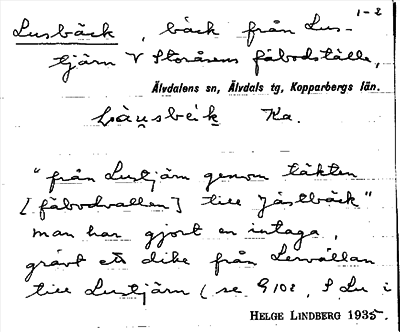 1-2
Lusbäck, bäck från Lus-
tjärn V Storåsens fäbodställe,
Älvdalens sn, Älvdals tg, Kopparbergs län.
Ka.
"från Lustjärn genom täkten
[fäbodvallen] till Jästbäck"
man har gjort en intaga,
grävt ett dike från Lervällan
till Lustjärn (se 9102, S Lu i
HELGE LINDBERG 1935.